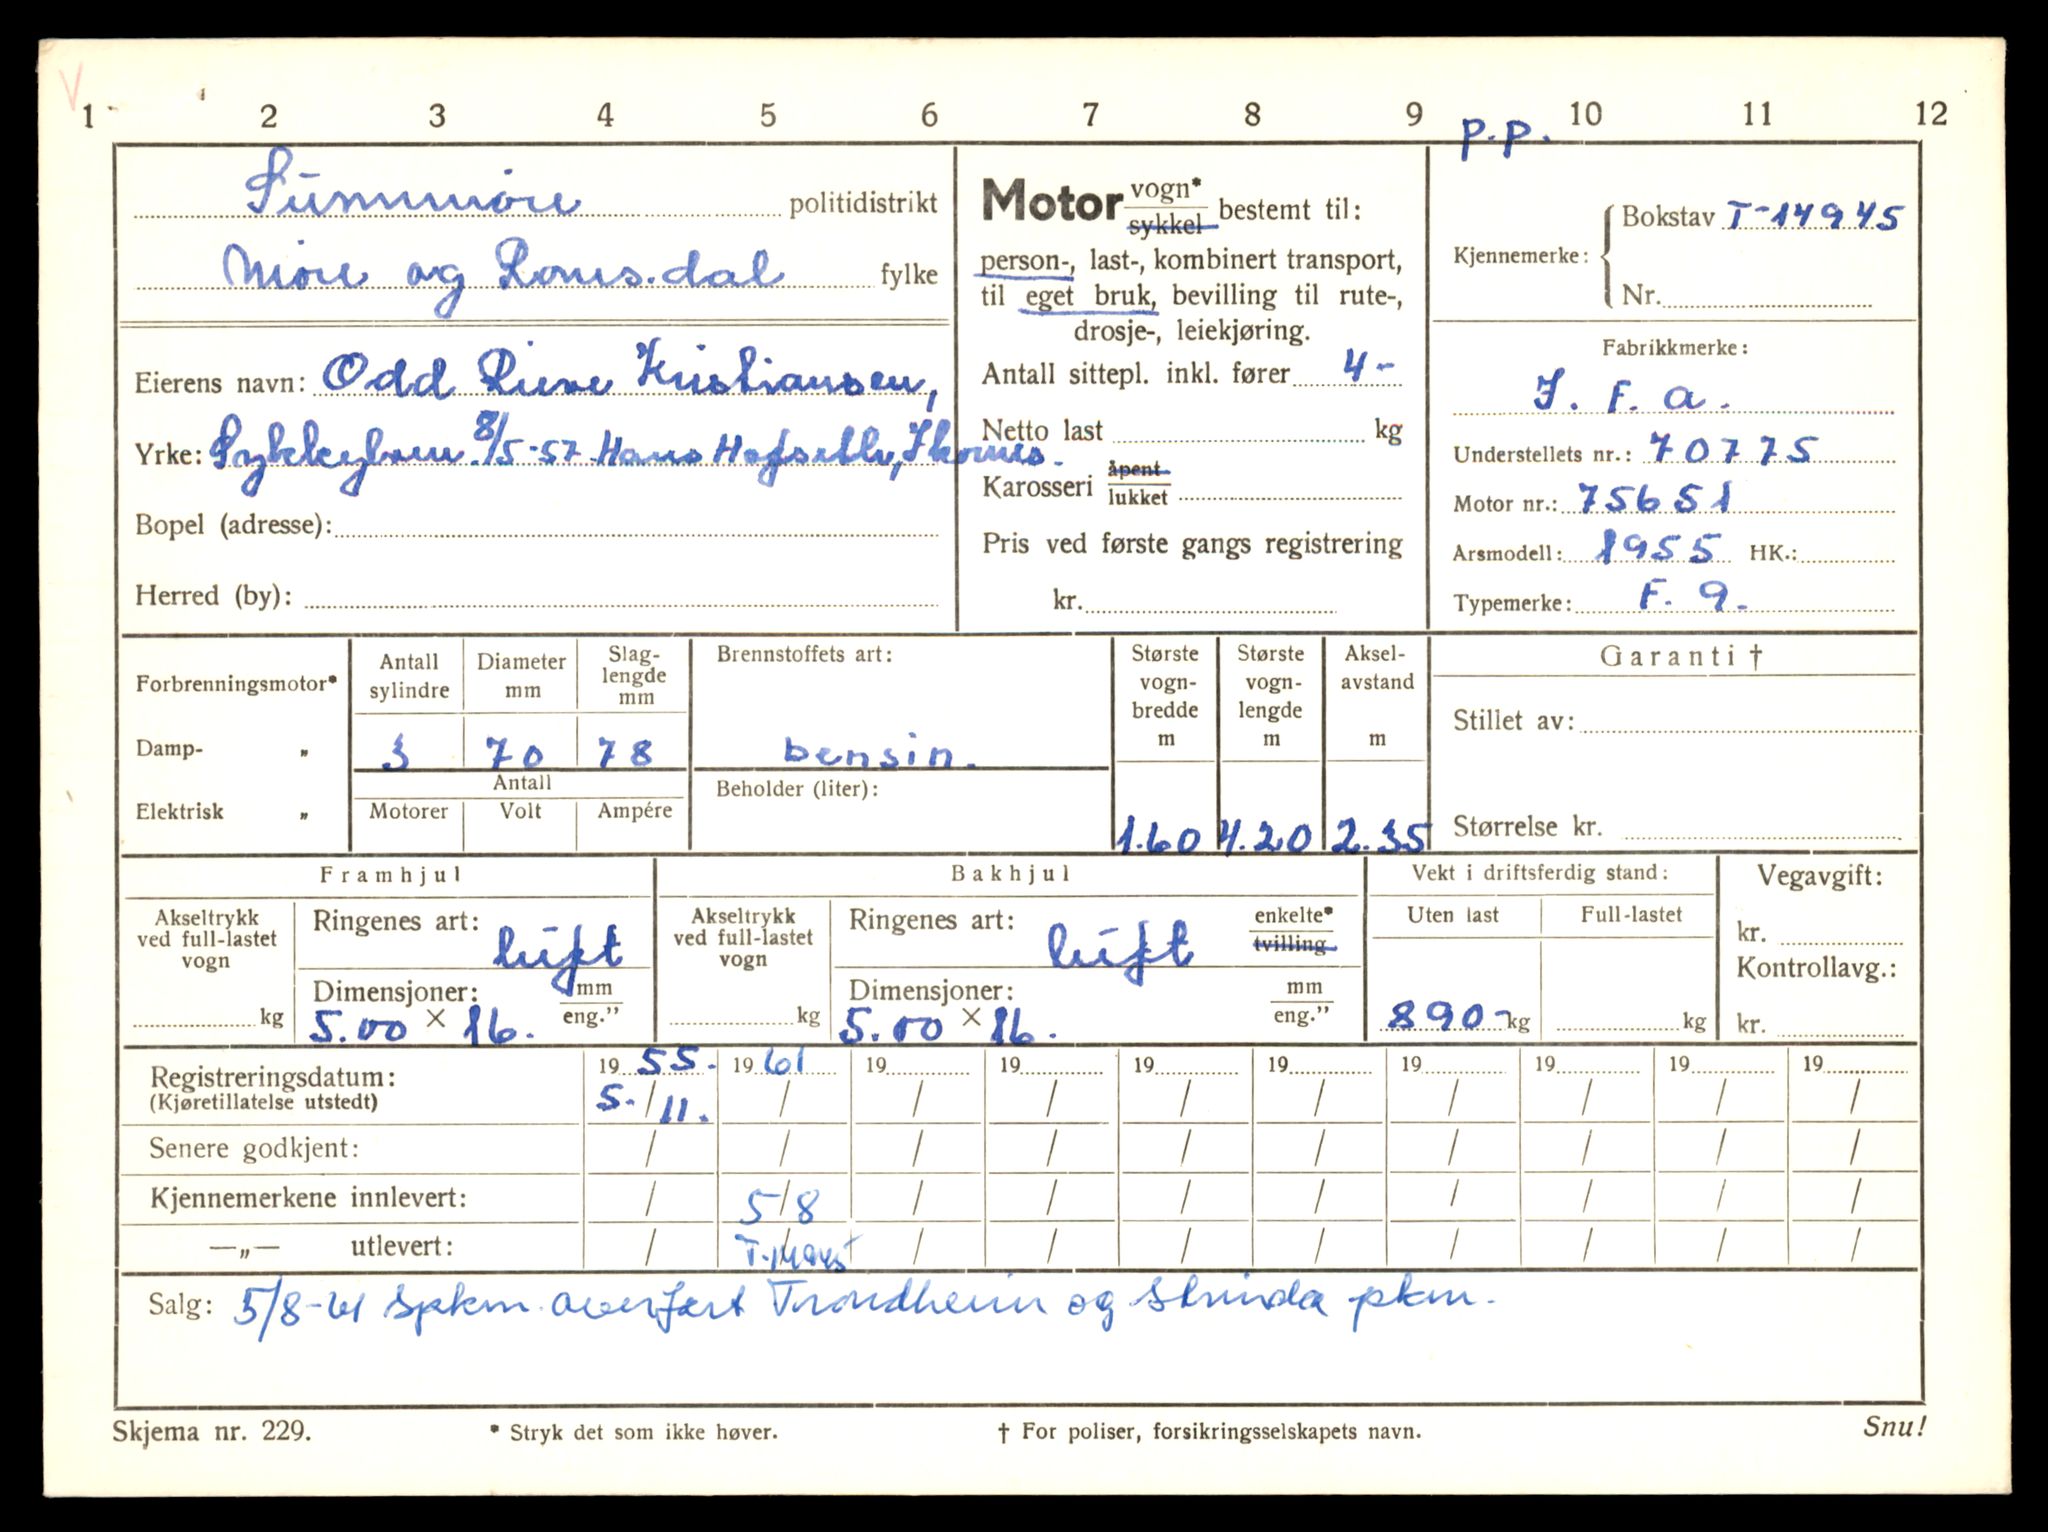 1 2 3 4 5 6 7 8 9 10 11 12
p.p.
Sunnmøre politidistrikt
Møre og Romsdal fylke
Eierens navn: Odd Rune Kristiansen,
Yrke: Sykkylven. 8/5-57 Hans Hofseth, Ikornes.
Bopel (adresse):
Herred (by):
Motor vogn* sykkel bestemt til:
person-, last-, kombinert transport,
til eget bruk, bevilling til rute-,
drosje-, leiekjøring.
Antall sittepl. inkl. fører 4-
Netto last kg
Karosseri åpent lukket
Pris ved første gangs registrering
kr.
Kjennemerke: Bokstav T-14945
Nr.
Fabrikkmerke:
I. F. a.
Understellets nr.: 70775
Motor nr.: 75651
Arsmodell: 1955 HK.:
Typemerke: F. 9.
Forbrenningsmotor*
Damp- „
Elektrisk „
Antall sylindre
Diameter mm
Slag-
lengde
mm
3 70 78
Antall
Motorer Volt Ampére
Brennstoffets art:
bensin.
Beholder (liter):
Største
vogn-
bredde
m
1.60
Største
vogn-
lengde
m
4.20
Aksel-
avstand
m
2.35
Garanti †
Stillet av:
Størrelse kr.
Framhjul
Akseltrykk
ved full-lastet
vogn
kg
Ringenes art: luft
Dimensjoner: mm eng.”
5.00 × 16.
Bakhjul
Akseltrykk
ved full-lastet
vogn
kg
Ringenes art: luft enkelte* tvilling
Dimensjoner: mm eng.”
5.00 × 16.
Vekt i driftsferdig stand:
Uten last Full-lastet
890- kg kg
Vegavgift:
kr.
Kontrollavg.:
kr.
Registreringsdatum: 19 55. 19 61 19 19 19 19 19 19 19 19
(Kjøretillatelse utstedt) 5./11. / / / / / / / / /
Senere godkjent: / / / / / / / / / /
Kjennemerkene innlevert: / 5/8 / / / / / / / /
—„— utlevert: / T.14945 / / / / / / / /
Salg: 5/8-61 spkm. overført Trondheim og Strinda pkm.
Skjema nr. 229. * Stryk det som ikke høver. † For poliser, forsikringsselskapets navn. Snu!